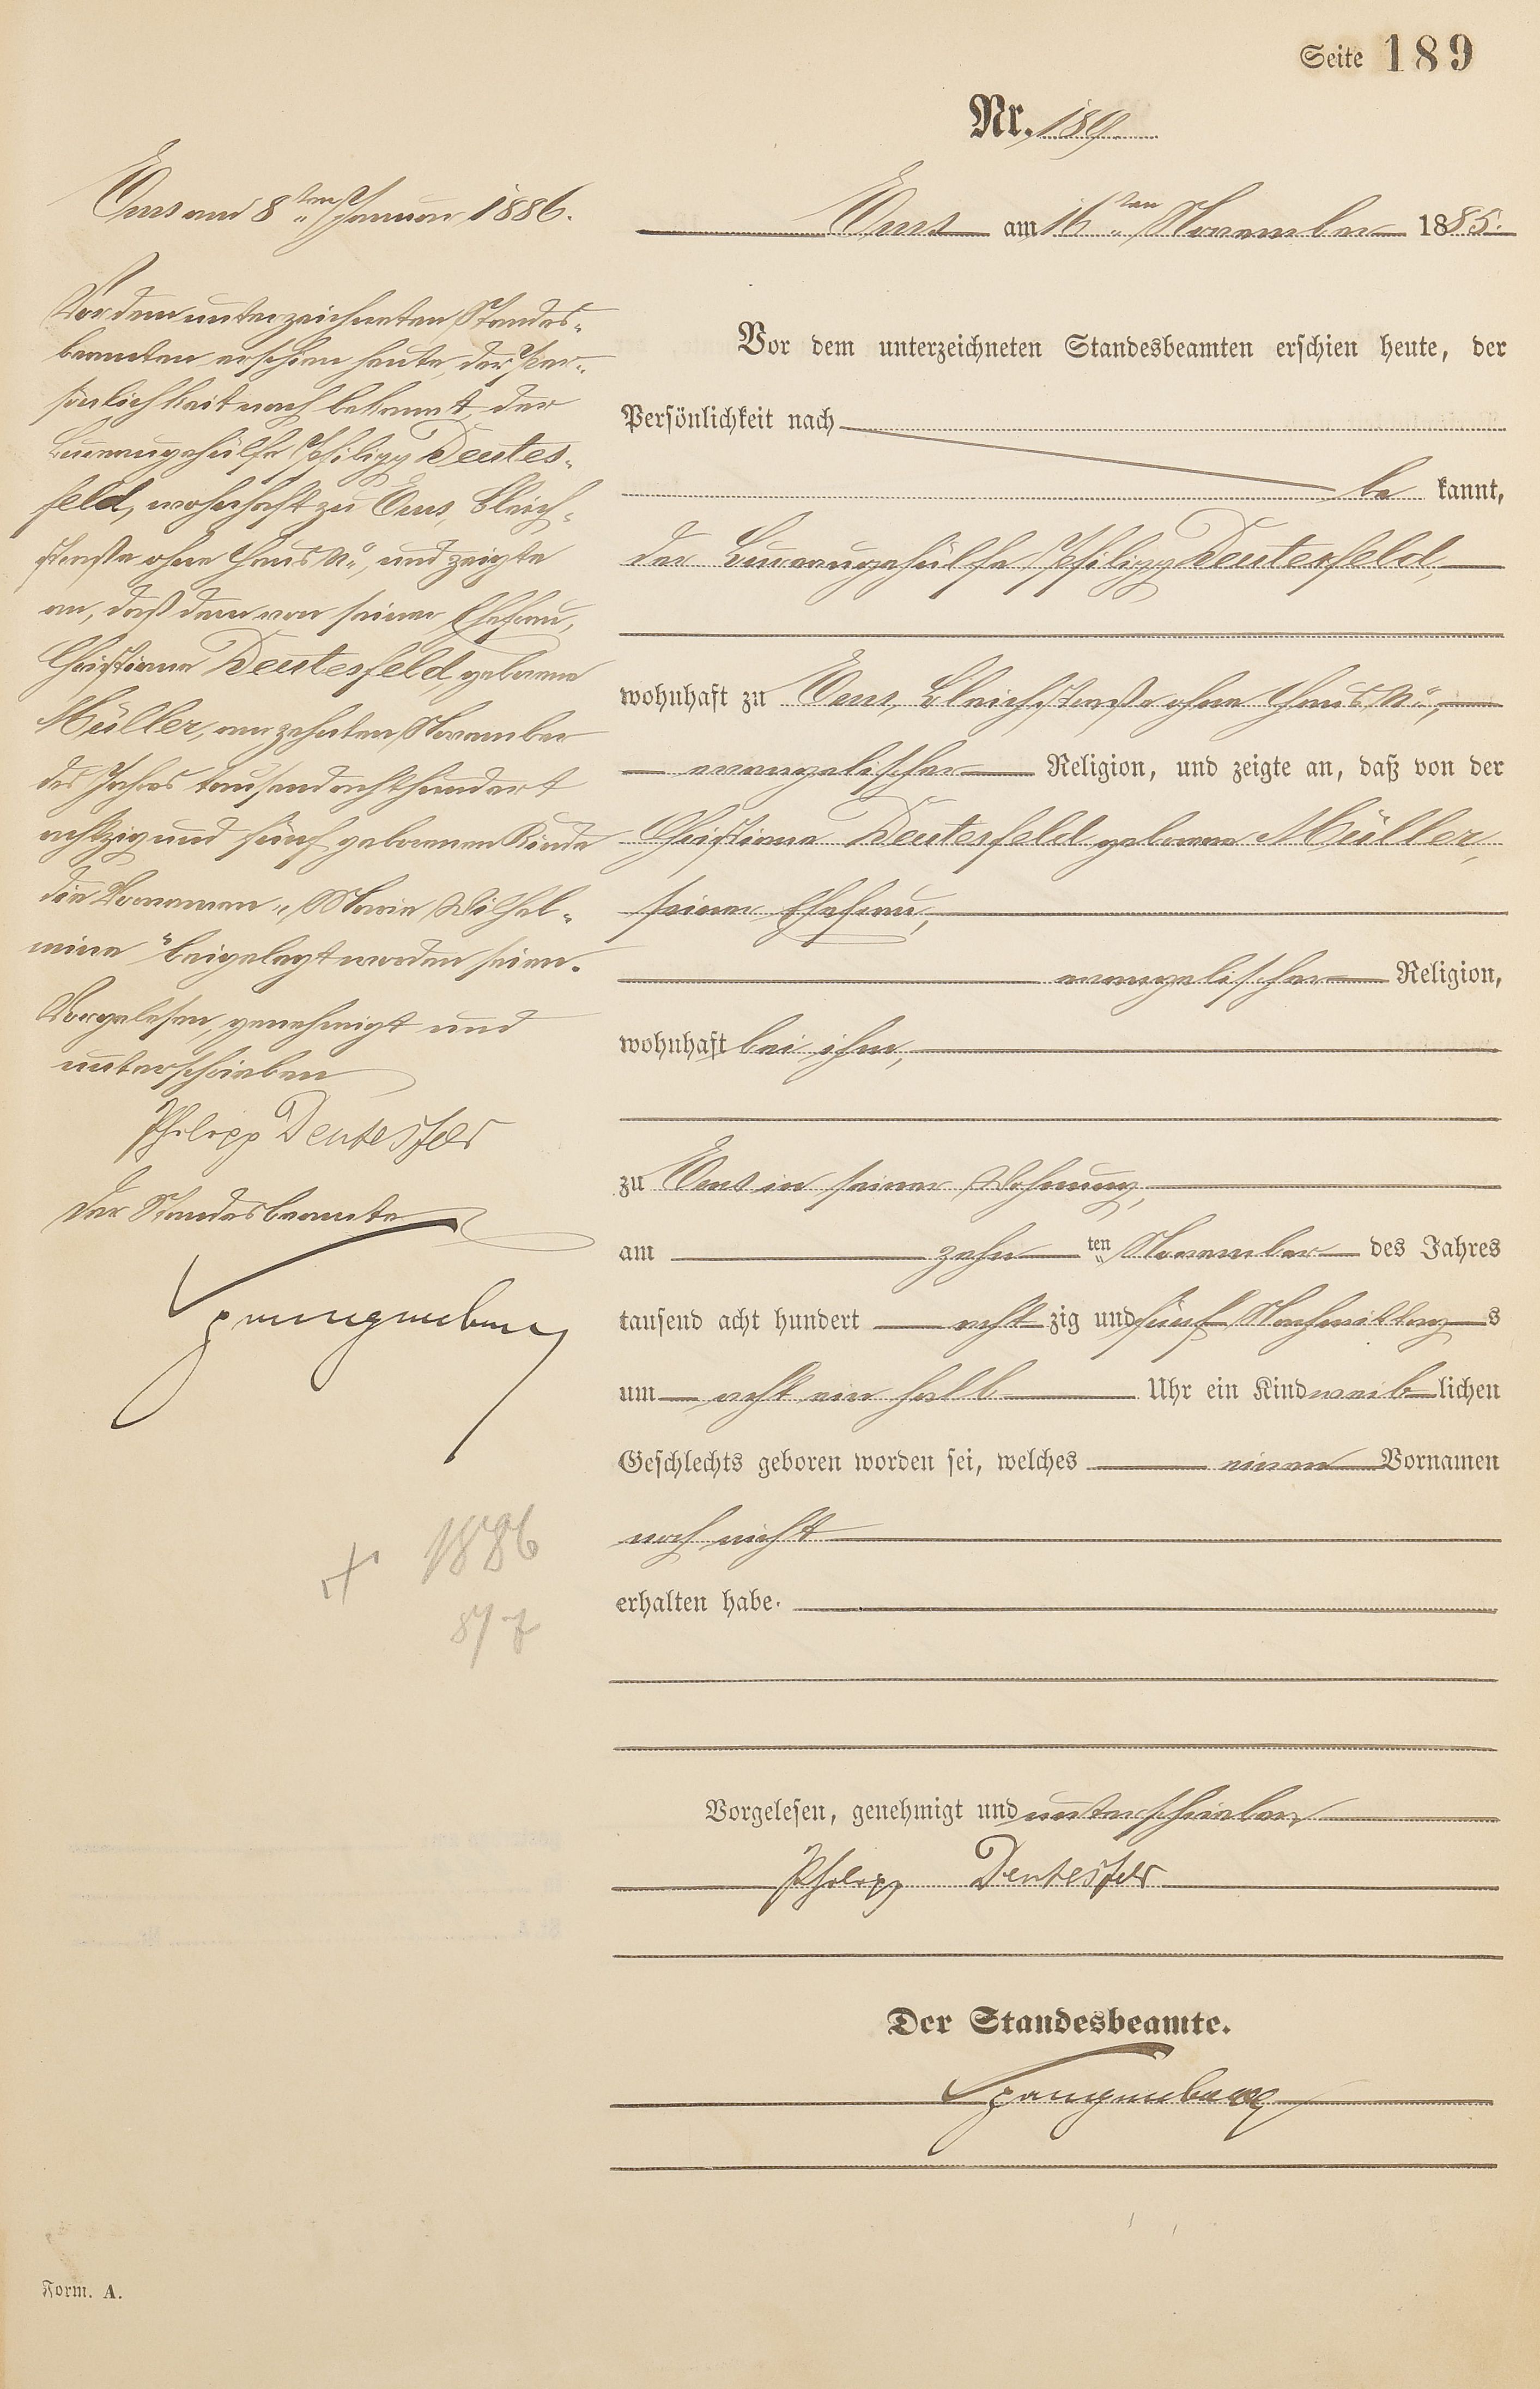 Seite 189
Nr. 189.
Ems am 16ten November 1885.
Vor dem unterzeichneten Standesbeamten erschien heute, der
Persönlichkeit nach
be kannt,
der Bureaugehülfe Philipp Deutesfeld,
wohnhaft zu Ems, Bleichstraße ohne Haus No.,
evangelischer Religion, und zeigte an, daß von der
Christiane Deutesfeld geborene Müller,
seiner Ehefrau,
evangelischer Religion,
wohnhaft bei ihm,
zu Ems in seiner Wohnung,
am zehn ten November des Jahres
tausend acht hundert acht zig und fünf Nachmittag s
um acht ein halb Uhr ein Kind weib lichen
Geschlechts geboren worden sei, welches einen Vornamen
noch nicht
erhalten habe.
Vorgelesen, genehmigt und unterschrieben
Philipp Deutesfeld
Der Standesbeamte.
Spangenberg
Ems am 8ten Januar 1886.
Vor dem unterzeichneten Standes-
beamten erschien heute, der Per-
sönlichkeit nach bekannt, der
Bureaugehülfe Philipp Deutes-
feld, wohnhaft zu Ems, Bleich-
straße ohne Haus No., und zeigte
an, daß dem von seiner Ehefrau,
Christiane Deutesfeld, geborene
Müller, am zehnten November
des Jahres tausend achthundert
achtzig und fünf geborenen Kinde
die Vornamen „Marie Wilhel-
mine" beigelegt worden seien.
Vorgelesen, genehmigt und
unterschrieben
Philipp Deutesfeld
Der Standesbeamte
Spangenberg
+ 1886
Form. A.